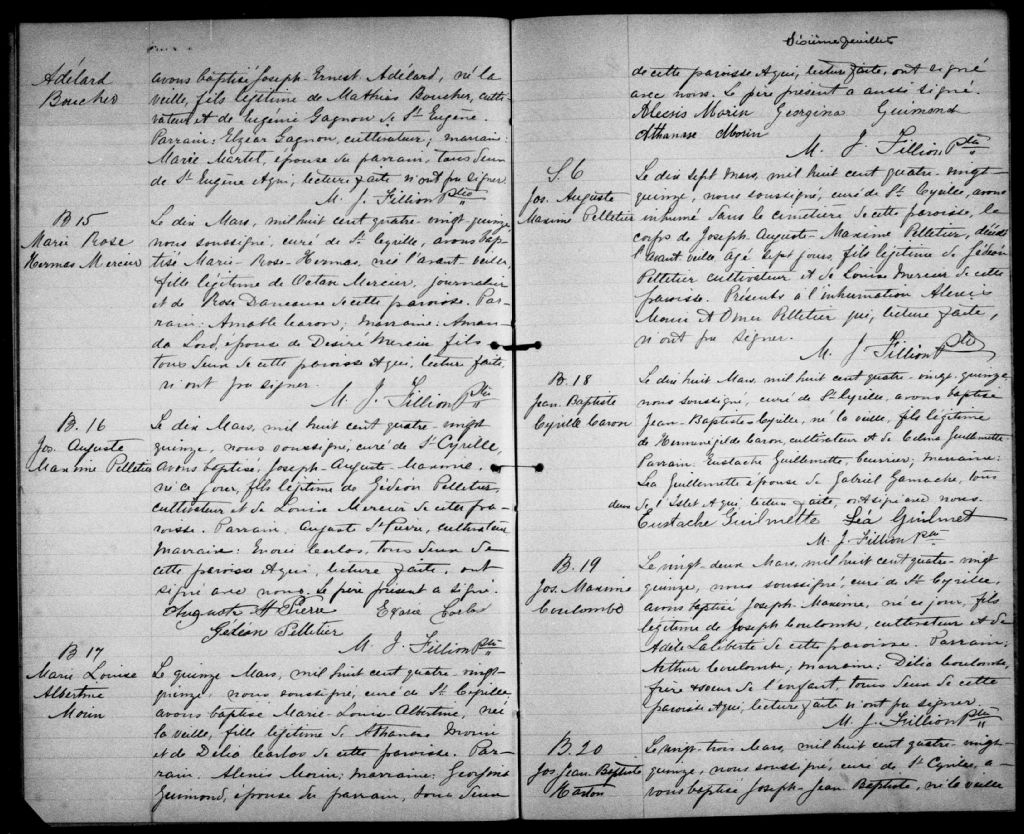 Adélard
Boucher
avons baptisé Joseph-Ernest Adélard, né la
veille, fils légitime de Mathias Boucher, culti-
vateur, et de Eugénie Gagnon de St Eugène.
Parrain: Elzéar Gagnon, cultivateur; marraine:
Marie Martel, épouse du parrain, tous deux
de St Eugène et qui, lecture faite n'ont pu signer
M. J. Fillion Ptre
B 15
Marie Rose
Hermas Mercier
Le dix Mars, mil huit cent quatre-vingt quinze
nous soussigné, curé de St Cyrille, avons bap-
tisé Marie-Rose-Hermas, née l'avant veille,
fille légitime de Octan Mercier, journalier
et de Rose Danseuse de cette paroisse. Par-
rain: Amable Caron; marraine: Aman-
da Lord, épouse de Désiré Mercier fils
tous deux de cette paroisse et qui, lecture faite,
n'ont pu signer.
M. J. Fillion Ptre
B. 16
Jos. Auguste
Maxime Pelletier
Le dix Mars, mil huit cent quatre-vingt
quinze, nous soussigné, curé de St Cyrille,
avons baptisé Joseph-Auguste-Maxime,
né ce jour, fils légitime de Gédéon Pelletier,
cultivateur et de Louise Mercier de cette pa-
roisse. Parrain: Auguste St Pierre, cultivateur
marraine: Carlos, tous deux de
cette paroisse et qui, lecture faite, ont
signé avec nous. Le père présent a signé.
Auguste St Pierre Carlos
Gédéon Pelletier
M. J. Fillion Ptre
B 17
Marie Louise
Albertine
Morin
Le quinze Mars, mil huit cent quatre-vingt-
quinze, nous soussigné, curé de St Cyrille,
avons baptisé Marie-Louise-Albertine, née
la veille, fille légitime de Athanase Morin
et de Délia Carlos de cette paroisse. Par-
rain: Alexis Morin; marraine: Georgina
Guimond, épouse du parrain, tous deux
Sixième feuillet
de cette paroisse et qui, lecture faite, ont signé
avec nous. Le père présent a aussi signé.
Alexis Morin Georgina Guimond
Athanase Morin
M. J. Fillion Ptre
S. 6
Jos. Auguste
Maxime Pelletier
Le dix sept Mars, mil huit cent quatre-vingt-
quinze, nous soussigné, curé de St Cyrille, avons
inhumé dans le cimetière de cette paroisse, le
corps de Joseph-Auguste-Maxime Pelletier, décédé
l'avant veille, agé sept jours, fils légitime de Gédéon
Pelletier cultivateur et de Louise Mercier de cette
paroisse. Présents à l'inhumation Alexis
Morin et Omer Pelletier qui, lecture faite,
n'ont pu signer.
M. J. Fillion Ptre
B. 18
Jean Baptiste
Cyrille Caron
Le dix huit Mars, mil huit cent quatre-vingt quinze
nous soussigné, curé de St Cyrille, avons baptisé
Jean-Baptiste-Cyrille, né la veille, fils légitime
de Herménégilde Caron, cultivateur et de Célina Guillemette
Parrain: Eustache Guillemette, beurrier; marraine:
Léa Guillemette épouse de Gabriel Gamache, tous
deux de l'Islet et qui lecture faite, ont signé avec nous.
Eustache Guilmette Léa Guilmet
M. J. Fillion Ptre
B. 19
Jos. Maxime
Coulombe
Le vingt-deux Mars, mil huit cent quatre-vingt
quinze, nous soussigné, curé de St Cyrille,
avons baptisé Joseph-Maxime, né ce jour, fils
légitime de Joseph Coulombe, cultivateur et de
Adèle Laliberté de cette paroisse. Parrain;
Arthur Coulombe; marraine: Délia Coulombe,
frère & sœur de l'enfant, tous deux de cette
paroisse et qui, lecture faite n'ont pu signer
M. J. Fillion Ptre
B. 20
Jos Jean Baptiste
Le vingt-trois Mars, mil huit cent quatre-vingt-
quinze, nous soussigné, curé de St Cyrille, a-
vons baptisé Joseph-Jean Baptiste, né la veille